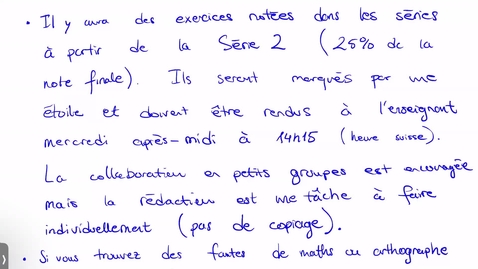 • Il y aura des exercices notées dans les séries
à partir de la Série 2 (25% de la
note finale). Ils seront marqués par une
étoile et doivent être rendus à l'enseignant
mercredi après-midi à 14h15 (heure suisse).
La collaboration en petits groupes est encouragée
mais la rédaction est une tâche à faire
individuellement (pas de copiage).
• Si vous trouvez des fautes de maths ou orthographe